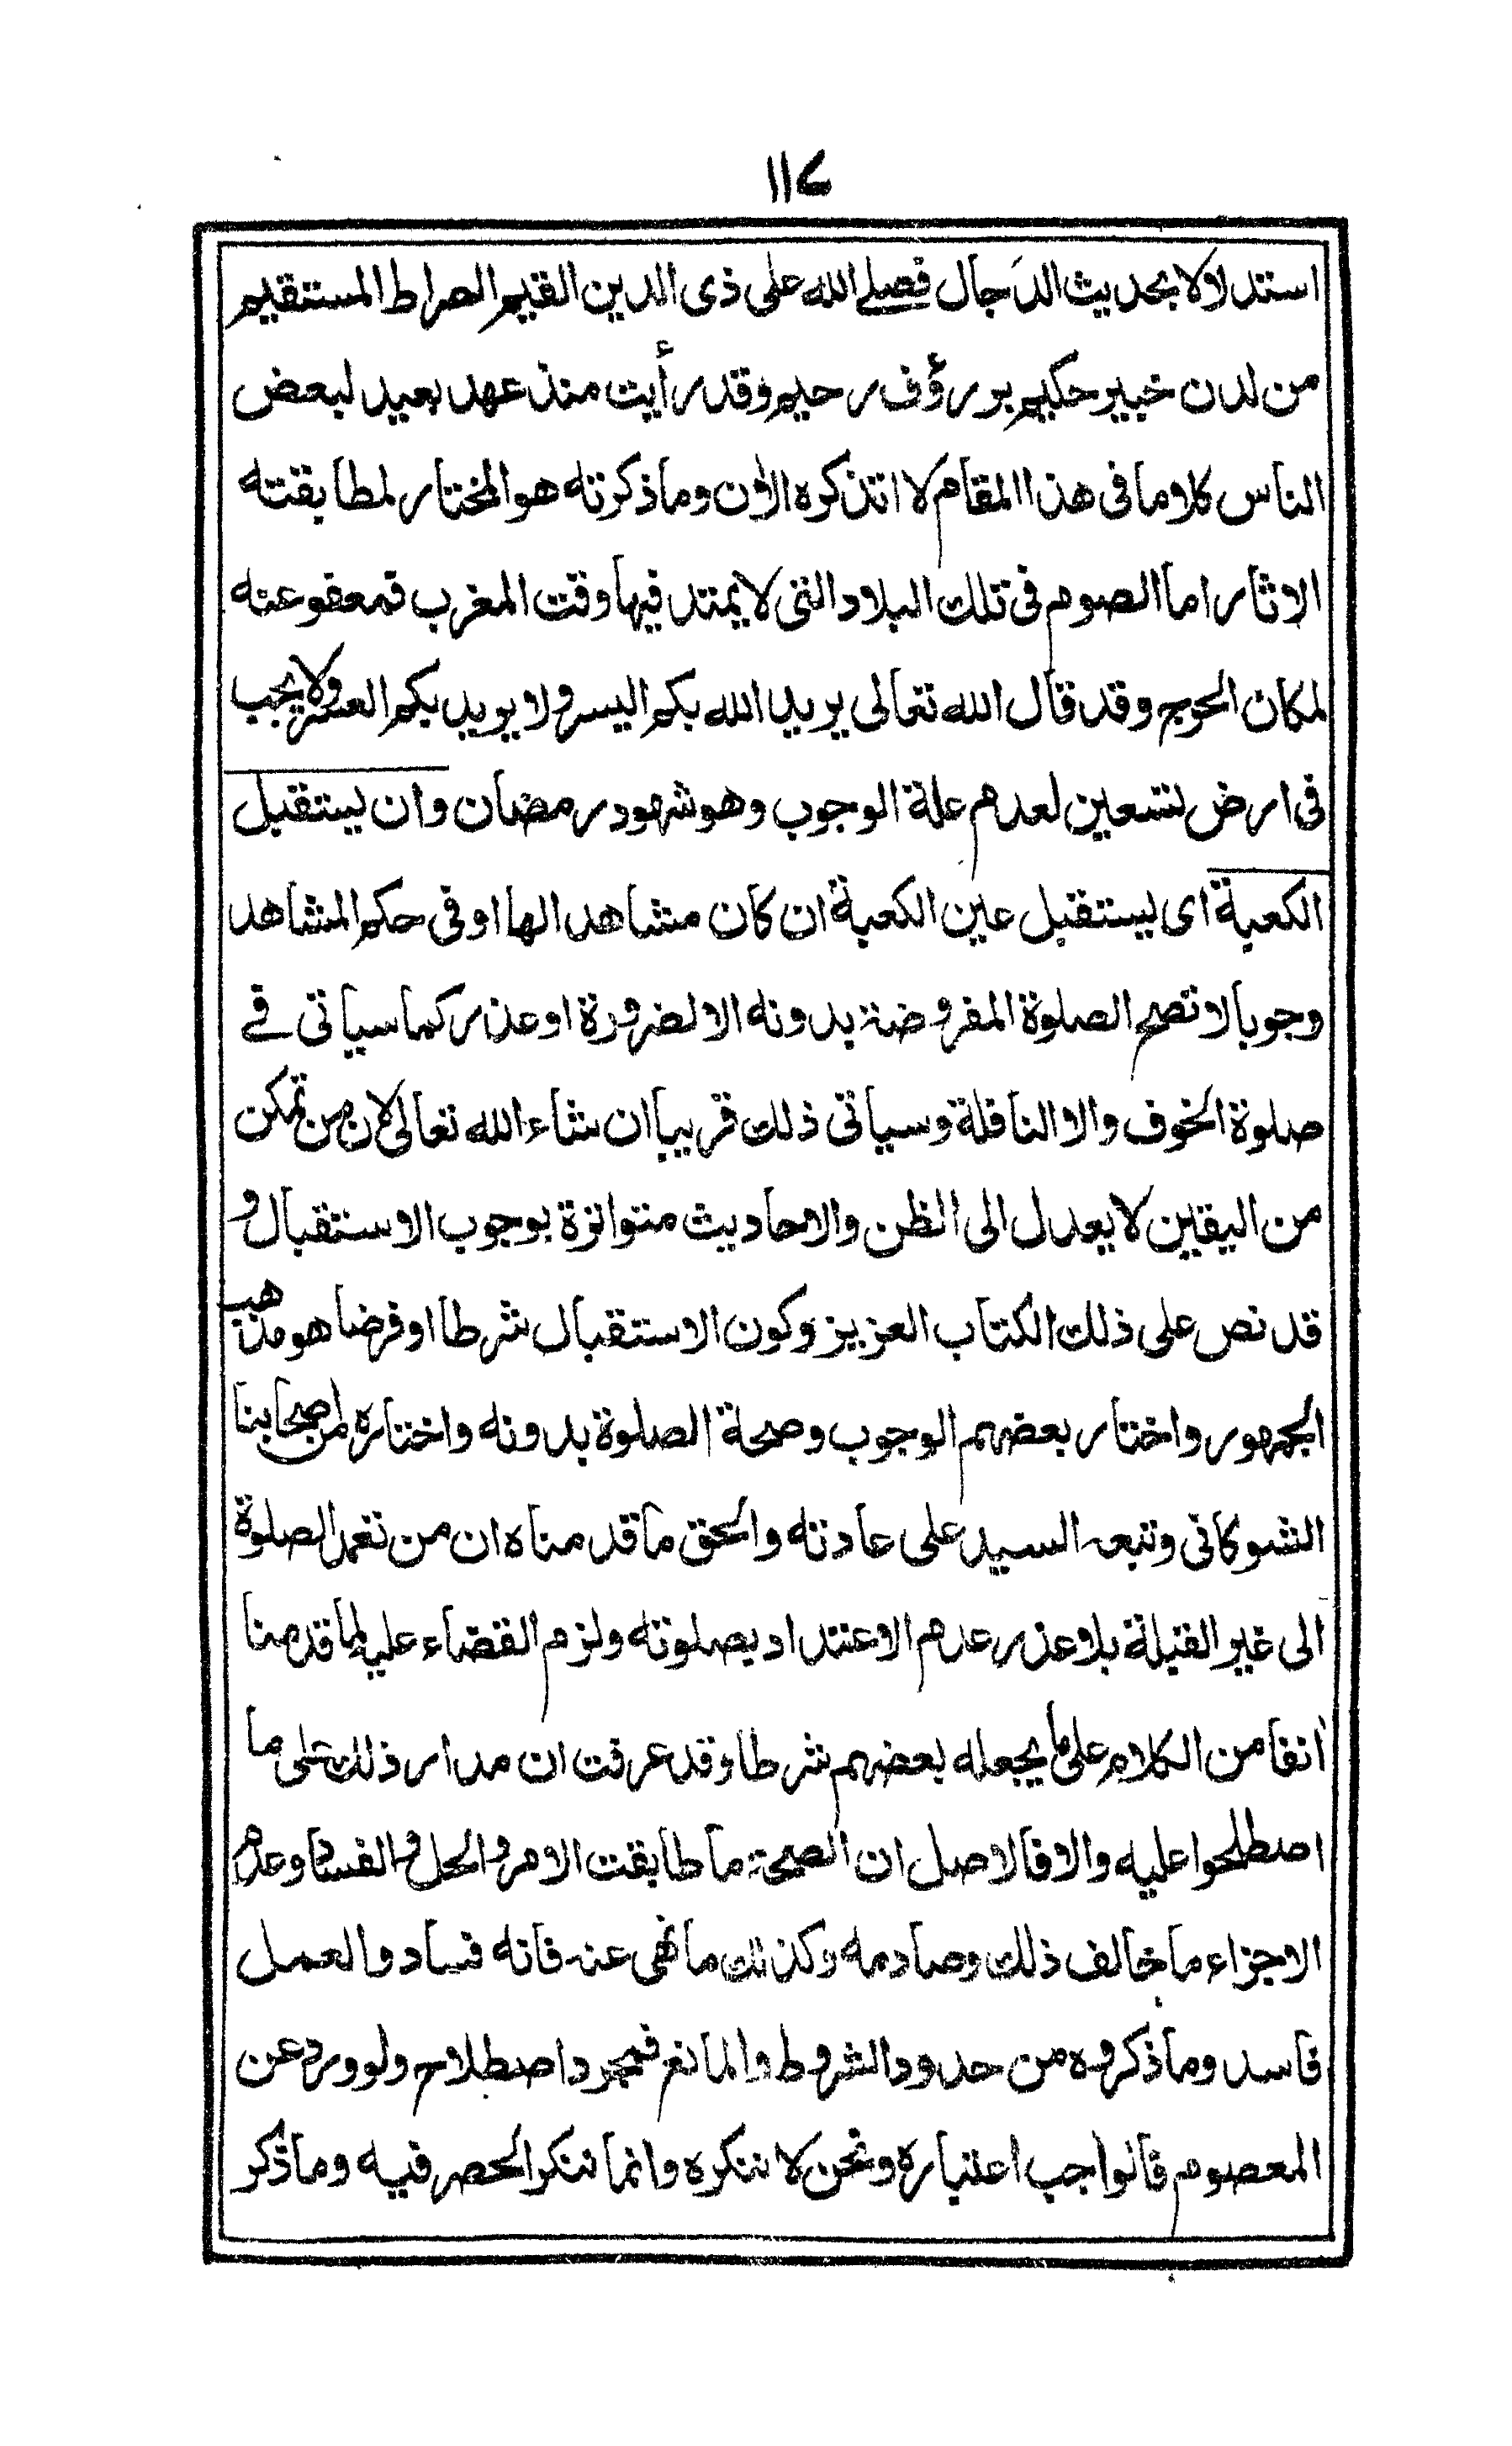 ١١٧
استدلالا بحديث الدجال فصلے الله على ذى الدين القيم الصراط المستقيم
من لدن خبير حكيم بر رؤف رحيم وقد رأيت منذ عهد بعيد لبعض
الناس كلاما فى هذا المقام لا اتذكره الأن وما ذكرته هو المختار لمطابقته
الاثار اما الصوم فى تلك البلاد التى لا يمتد فيها وقت المغرب فمعفو عنه
لمكان الحرج وقد قال الله تعالى يريد الله بكم اليسر ولا يريد بكم العسر ولا يجب
فى ارض تسعين لعدم علة الوجوب وهو شهود رمضان وان يستقبل
الكعبة اى يستقبل عين الكعبة ان كان مشاهدا لها او فى حكم المشاهد
وجوبا لا تصح الصلوة المفروضة بدونه الا لضرورة او عذر كما سياتى فے
صلوة الخوف والا النافلة وسياتى ذلك قريبا ان شاء الله تعالى لان من تمكن
من اليقين لا يعدل الى الظن والاحاديث متواترة بوجوب الاستقبال و
قد نص على ذلك الكتاب العزيز وكون الاستقبال شرطا او فرضا هو مذهب
الجمهور واختار بعضهم الوجوب وصحة الصلوة بدونه واختاره من اصحابنا
الشوكانى وتبعه السيد على عادته والحق ما قدمناه ان من تعمد الصلوة
الى غير القبلة بلا عذر عدم الاعتداد بصلوته ولزم القضاء عليه لما قدمنا
أنفا من الكلام على ما يجعله بعضهم شرطا وقد عرفت ان مدار ذلك على ما
اصطلحوا عليه والا فالاصل ان الصحة ما طابقت الامر والحل والفساد وعدم
الاجزاء ما خالف ذلك وصادمه وكذلك ما نهى عنه فانه فساد والعمل
فاسد وما ذكروه من حدود الشروط والمانع فمجرد اصطلاح ولو ورد عن
المعصوم فالواجب اعتباره ونحن لا ننكره وانما ننكر الحصر فيه وما ذكر